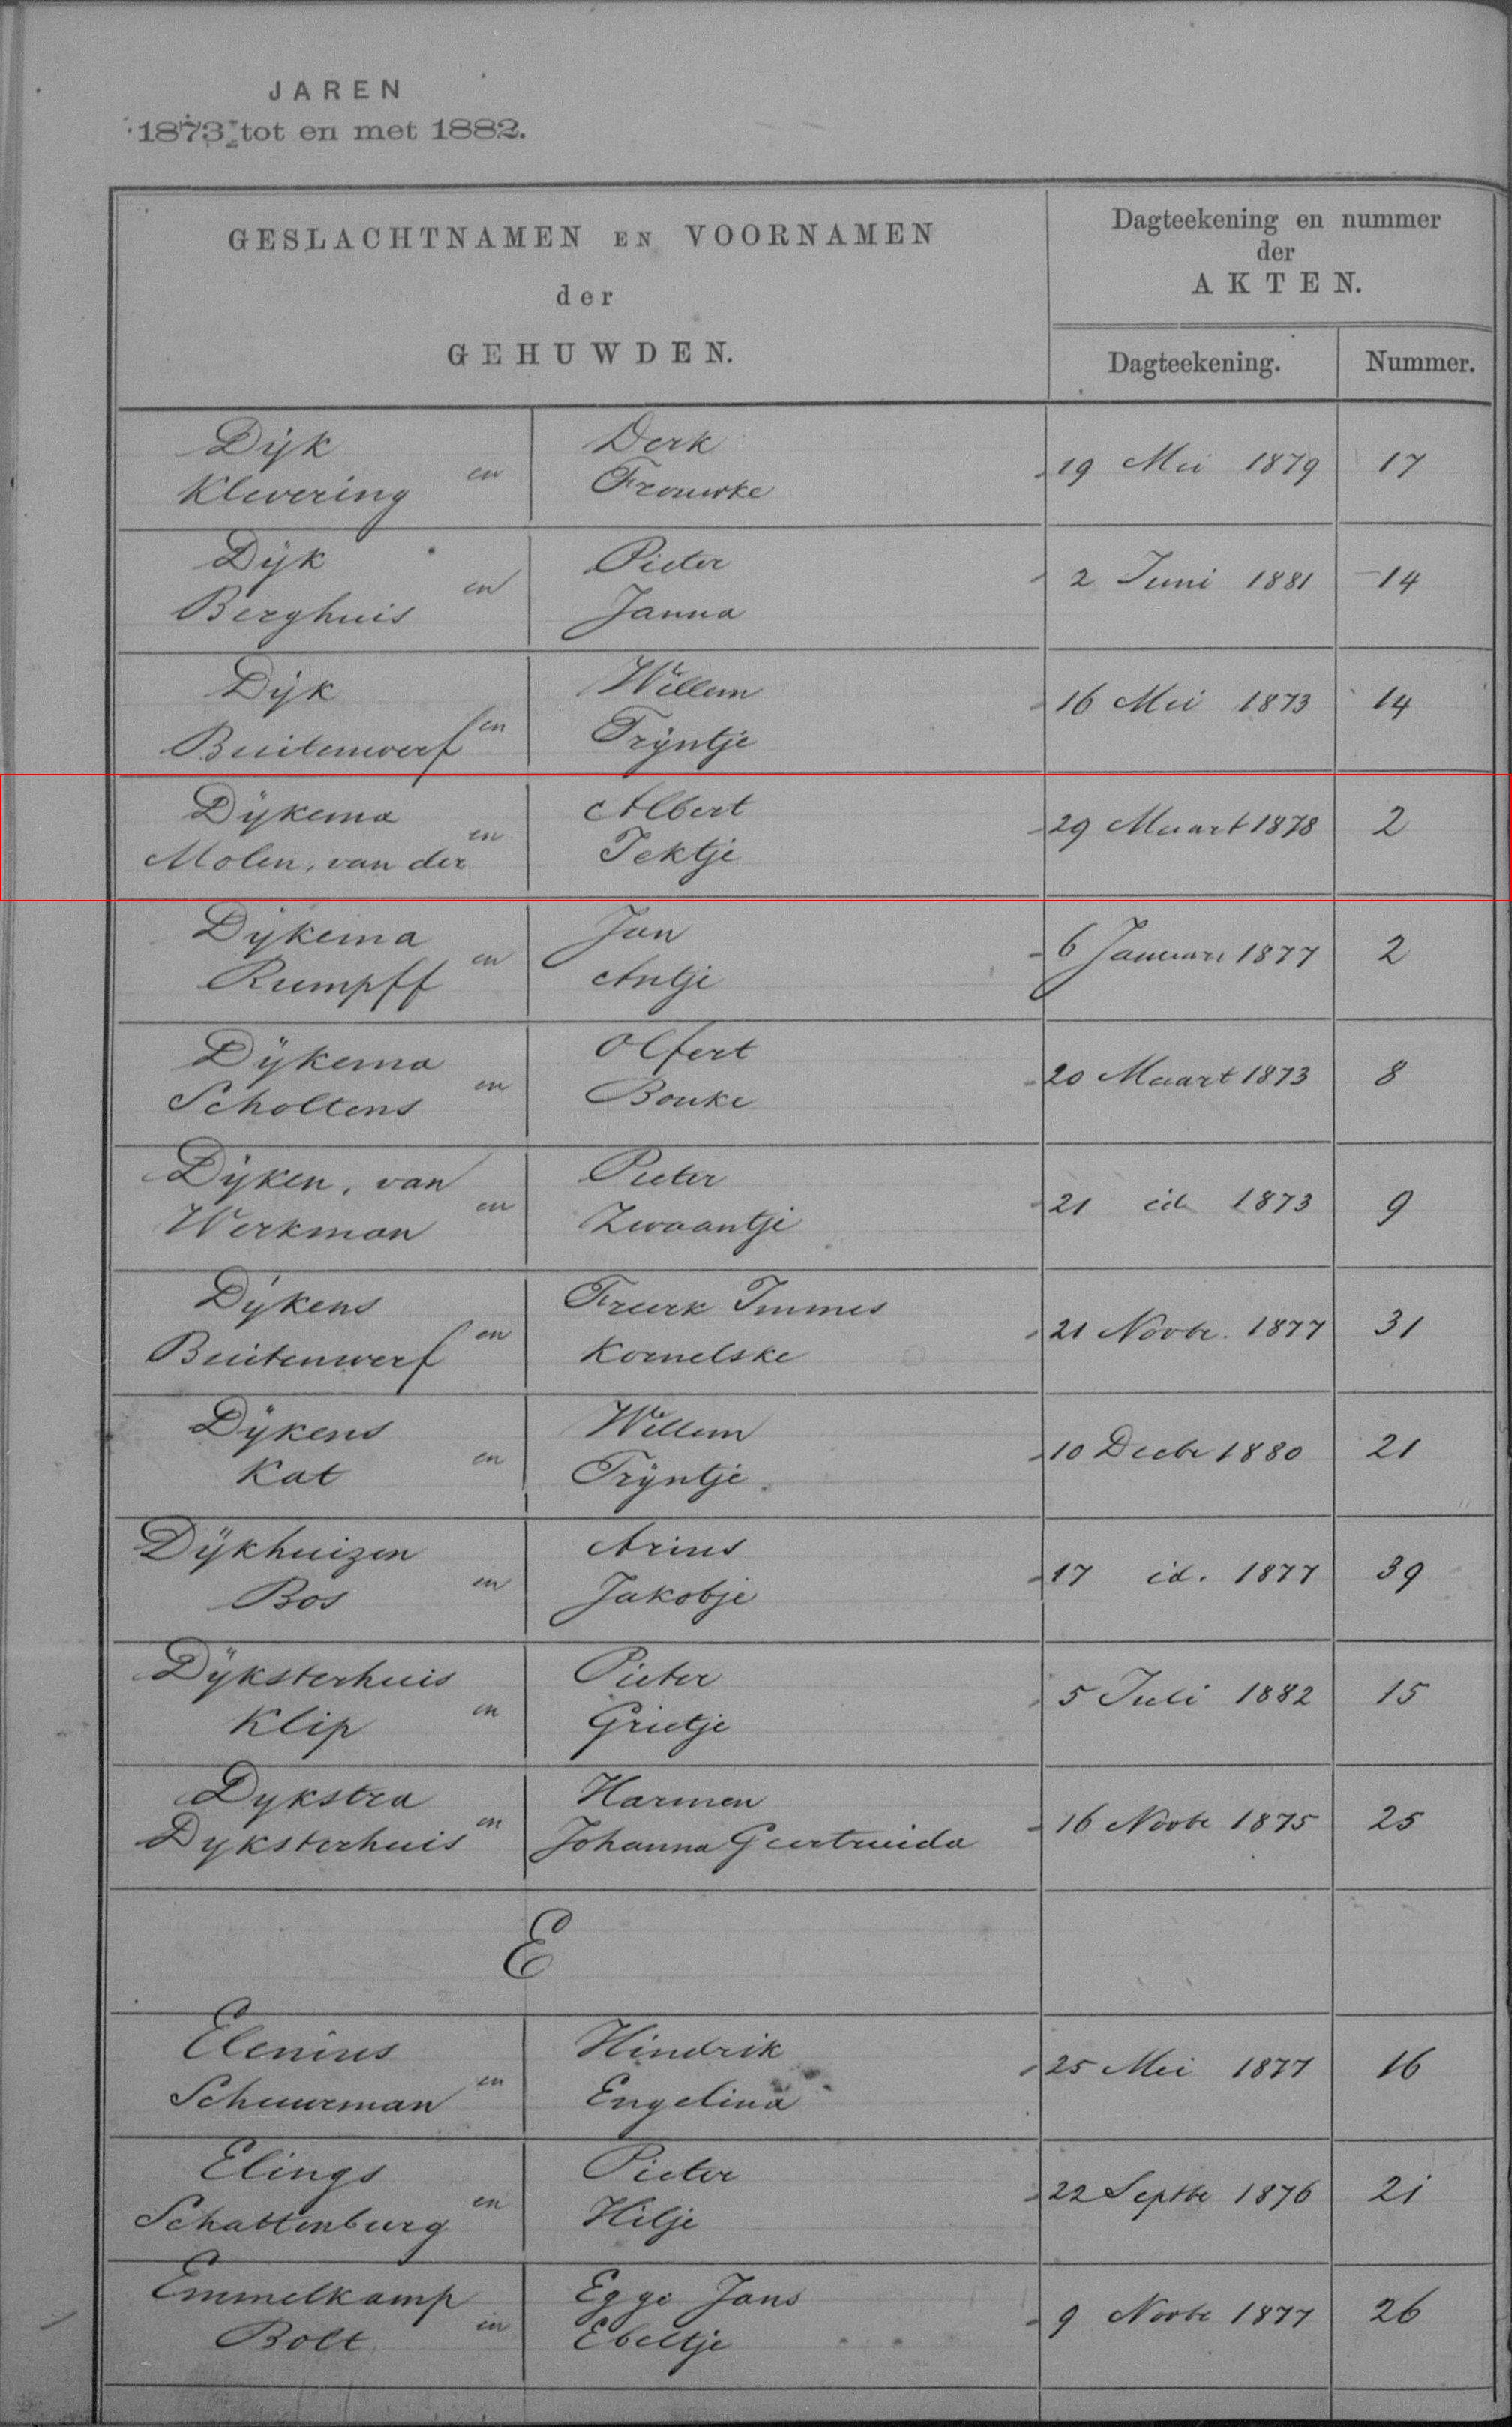 JAREN
1873 tot en met 1882.
GESLACHTNAMEN EN VOORNAMEN
der
GEHUWDEN.
Dagteekening en nummer
der
AKTEN.
Dagteekening. Nummer.
Dijk en Derk 19 Mei 1879 17
Klevering Frouwke
Dijk en Pieter 2 Juni 1881 14
Berghuis Janna
Dijk en Willem 16 Mei 1873 14
Buitenwerf Trijntje
Dijkema en Albert 29 Maart 1878 2
Molen, van der Tektje
Dijkema en Jan 6 Januari 1877 2
Rumpff Antje
Dijkema en Olfert 20 Maart 1873 8
Scholtens Bouke
Dijken, van en Pieter 21 id. 1873 9
Werkman Zwaantje
Dijkens en Freerk Immes 21 Novbr. 1877 31
Buitenwerf Kornelske
Dijkens en Willem 10 Decbr 1880 21
Kat Trijntje
Dijkhuizen en Arius 17 id. 1877 39
Bos Jakobje
Dijksterhuis en Pieter 5 Juli 1882 15
Klip Grietje
Dykstra en Harmen 16 Novbr 1875 25
Dyksterhuis Johanna Geertruida
E
Elenius en Hindrik 25 Mei 1877 16
Schuurman Engelina
Elings en Pieter 22 Septbr 1876 21
Schattenburg Hilje
Emmelkamp en Egge Jans 9 Novbr 1877 26
Bolt Ebeltje